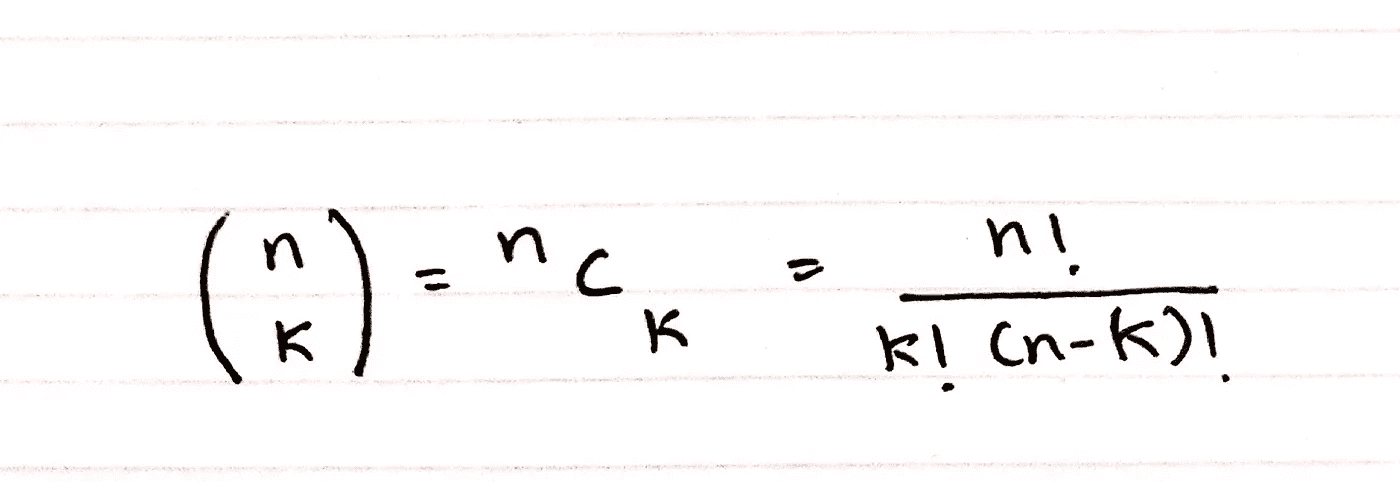 (n k) = ⁿCₖ = n! / k! (n-k)!